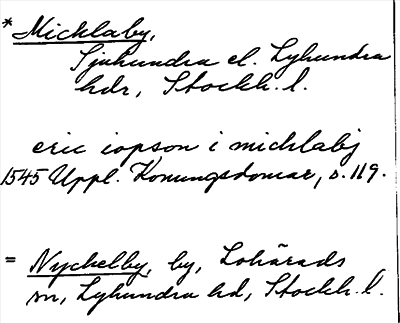 * Micklaby,
Sjuhundra el. Lyhundra
hdr, Stockh. l.
eric iopson i micklabÿ
1545 Uppl. Konungsdomar, s. 119.
= Nyckelby, by, Lohärads
sn, Lyhundra hd, Stockh. l.